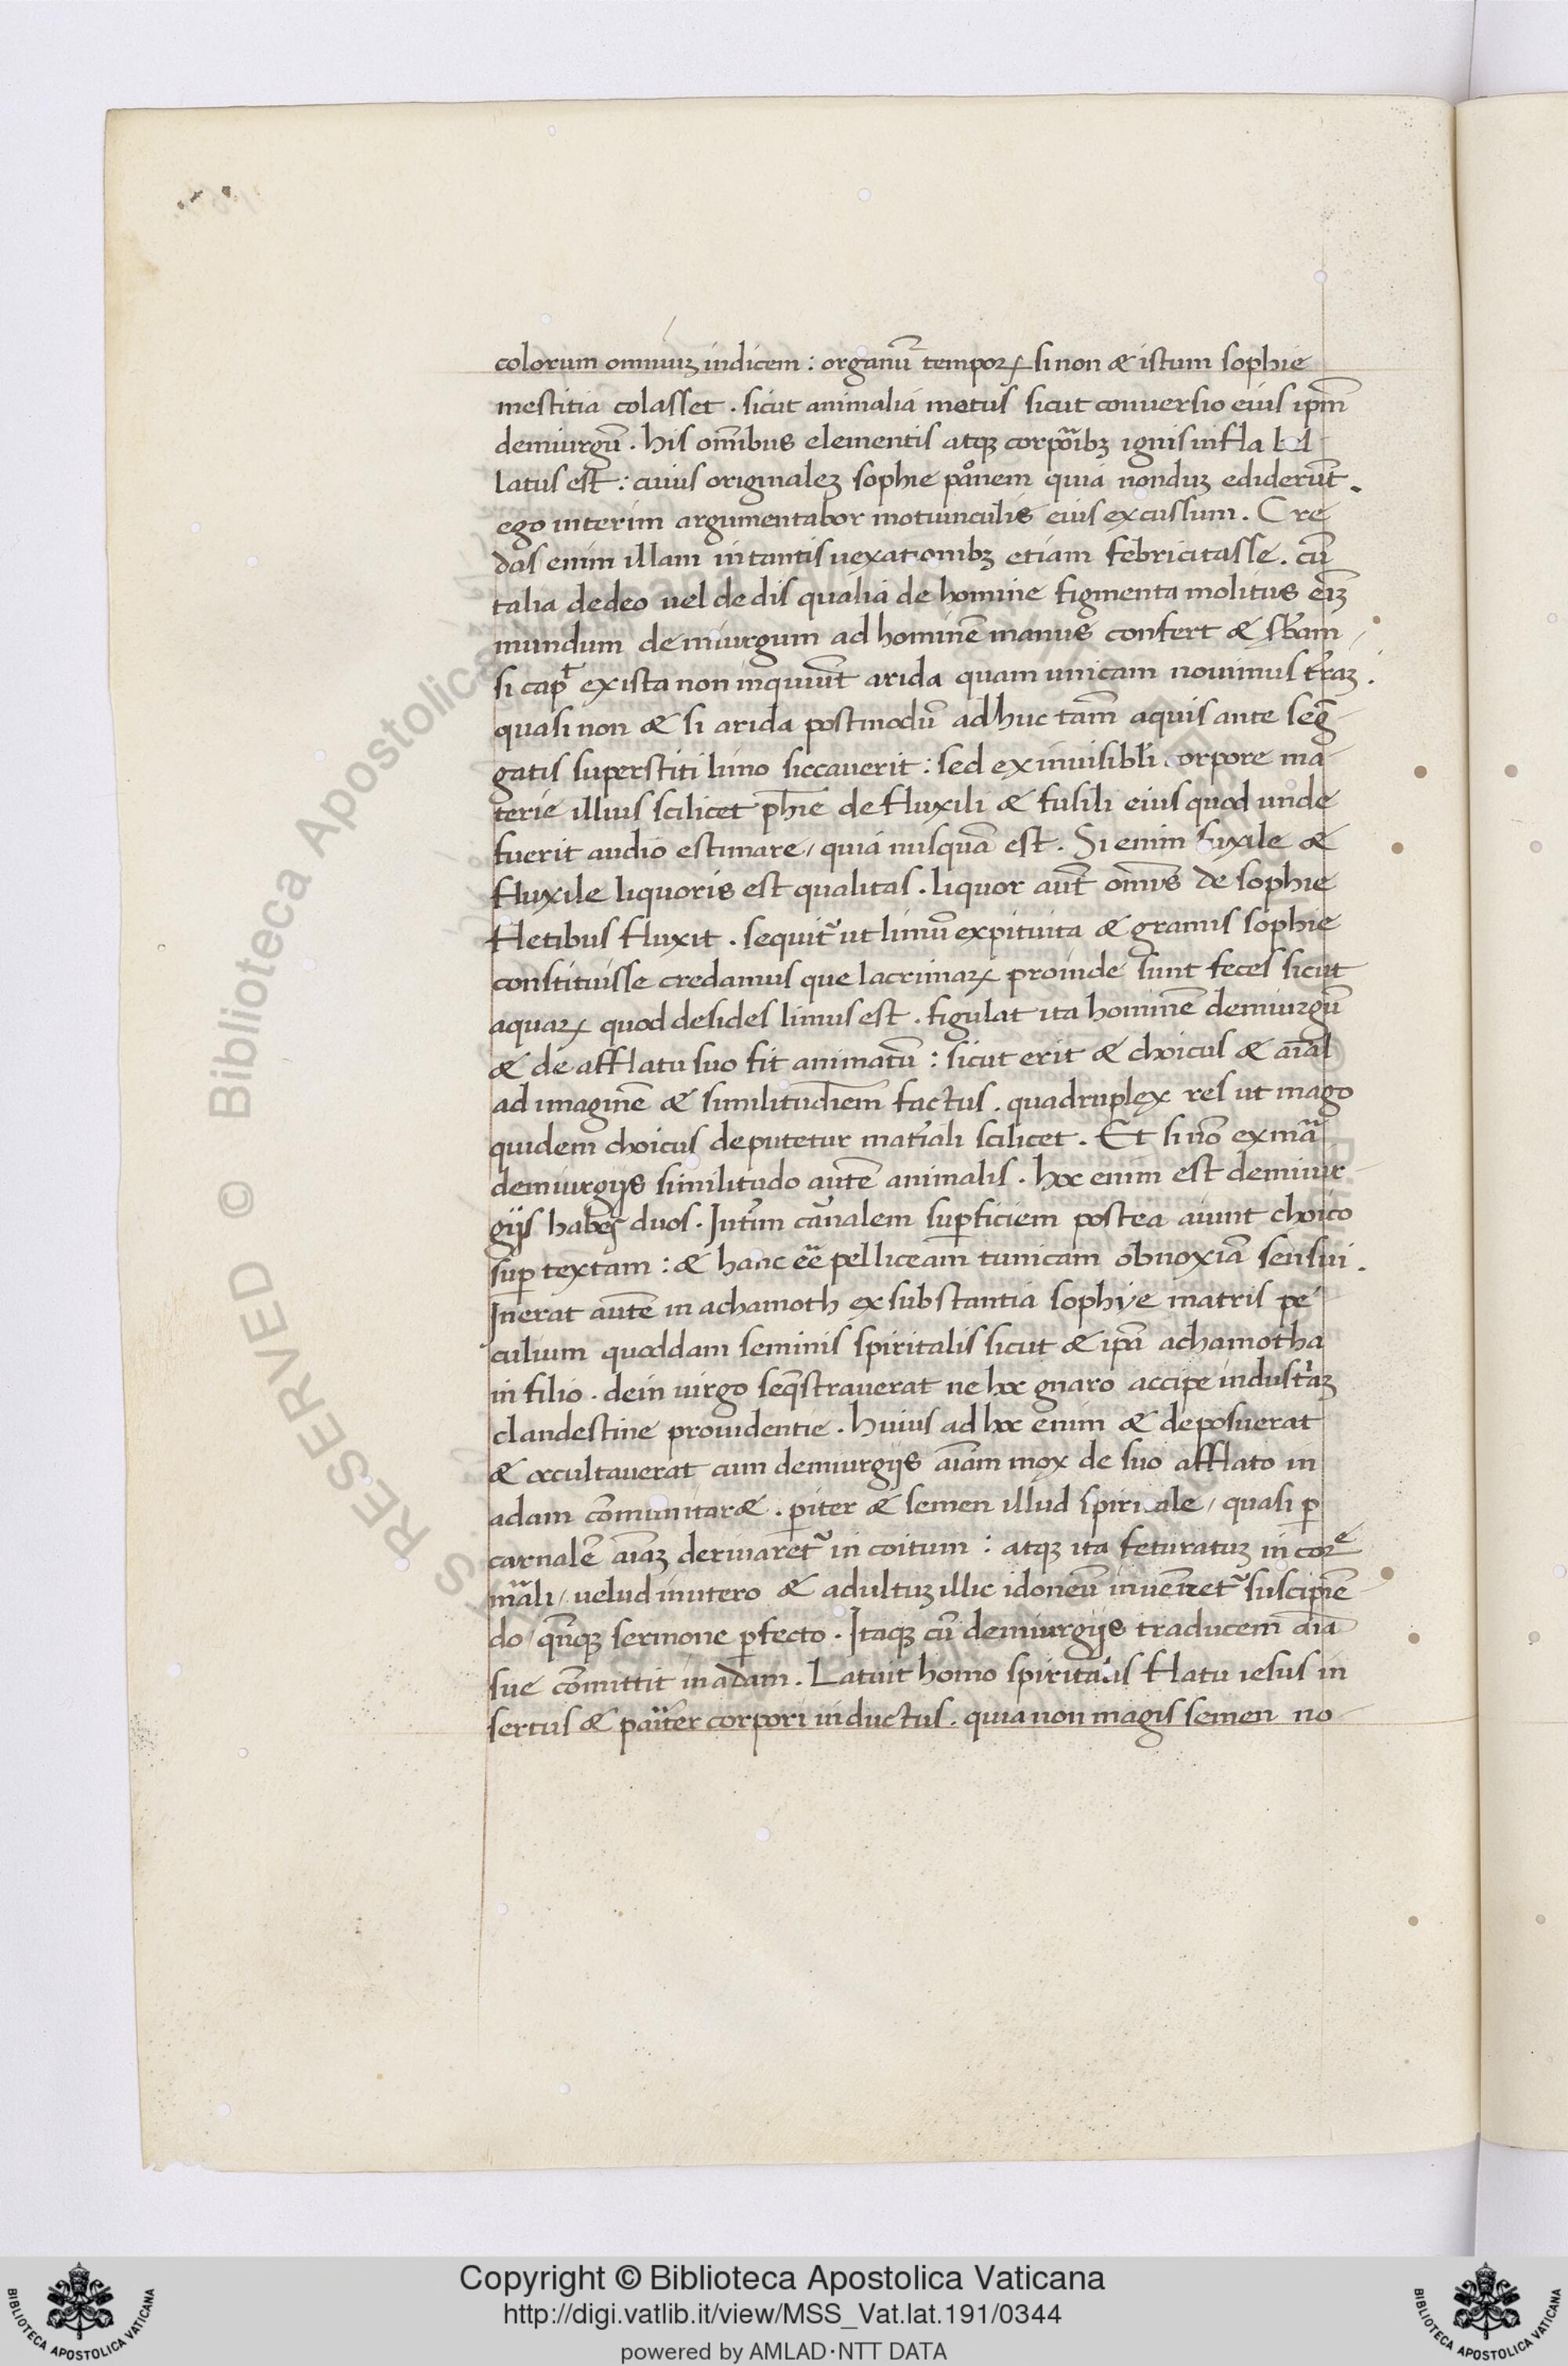 colorum omniuꝫ iudicem : organū tempoꝝ si non & istum sophie
mestitia colasset . sicut animalia motus sicut conuersio eius ipm̄
demiurgū . his om̄ibus elementis atqꝫ corpōribꝫ ignis infla bel
latus est : cuius originaleꝫ sophie pa°nem quia nonduꝫ ediderūt .
ego interim argumentabor motiunculis eius excussum . Cre
das enim illam in tantis uexationibꝫ etiam febricitasse . cū
talia de deo uel de dis qualia de homine figmenta molitus eīꝫ
mundum demiurgum ad hominē manus confert & sb̄am
si capᵗ ex ista non inquiūt arida quam unicam nouimus tr̄aꝫ .
quasi non & si arida postmodū adhuc tam̄ aquis ante seḡ
gatis superstiti limo siccauerit : sed ex inuisibl̄i corpore ma
terie illius scilicet ph̄ie de fluxili & fusili eius quod unde
fuerit audio estimare / quia nusquā est . Si enim fuxile &
fluxile liquoris est qualitas . liquor aūt om̄is de sophie
fletibus fluxit . sequit᷑ ut limū ex pituita & gramis sophie
constituisse credamus que lacrimaꝝ proinde sunt feces sicut
aquaꝝ quod desides limus est . figulat ita hominē demiurgū
& de afflatu suo fit animatū : sicut erit & choicus & aīal
ad imaginē & similitudīem factus . quadruplex res ut mago
quidem choicus deputetur mat̄iali scilicet . Et si nō ex mā
demiurgijs similitudo autē animalis . hoc enim est demiur
gijs habꝫ duos . Int̄im cārnalem suꝑficiem postea aiunt choico
suꝑ textam : & hanc eē pelliceam tunicam obnoxiā sensui .
Inerat autē in achamoth ex substantia sophye matris pe
culium quoddam seminis spiritalis sicut & ipā achamotha
in filio . dein uirgo seq̄strauerat ne hoc gnaro accipe industr̄aꝫ
clandestine prouidentie . huius ad hoc enim & deposuerat
& occultauerat cum demiurgijs aīam mox de suo afflato in
adam cōmunitar& . ꝑiter & semen illud spiri ale / quasi ꝑ
carnalē aīaꝫ deriuaret᷑ in coitum : atqꝫ ita feturatuꝫ in corᵉ
māli / uelud in utero & adultuꝫ illic idoneū inuēnret᷑ suscipiē
do / qn̄qꝫ sermone ꝑfecto . Itaqꝫ cū demiurgijs traducem aīa
sue cōmittit in adam . Latuit homo spiritalis flatu iesus in
sertus & pariter corpori inductus . quia non magis semen no
Copyright © Biblioteca Apostolica Vaticana
http://digi.vatlib.it/view/MSS_Vat.lat.191/0344
powered by AMLAD·NTT DATA